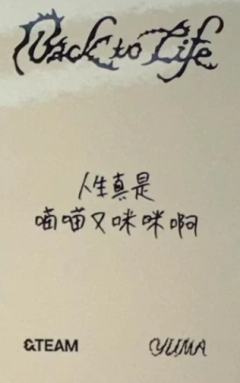 Back to Life
人生真是
喃喵又咪咪啊
&TEAM
YUMA